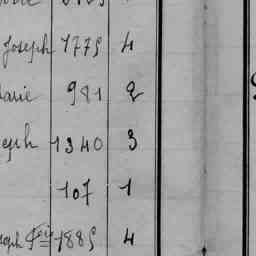 Joseph 1775 4
Marie 981 2
eph 1340 3
107 1
oseph Fois 1885 4